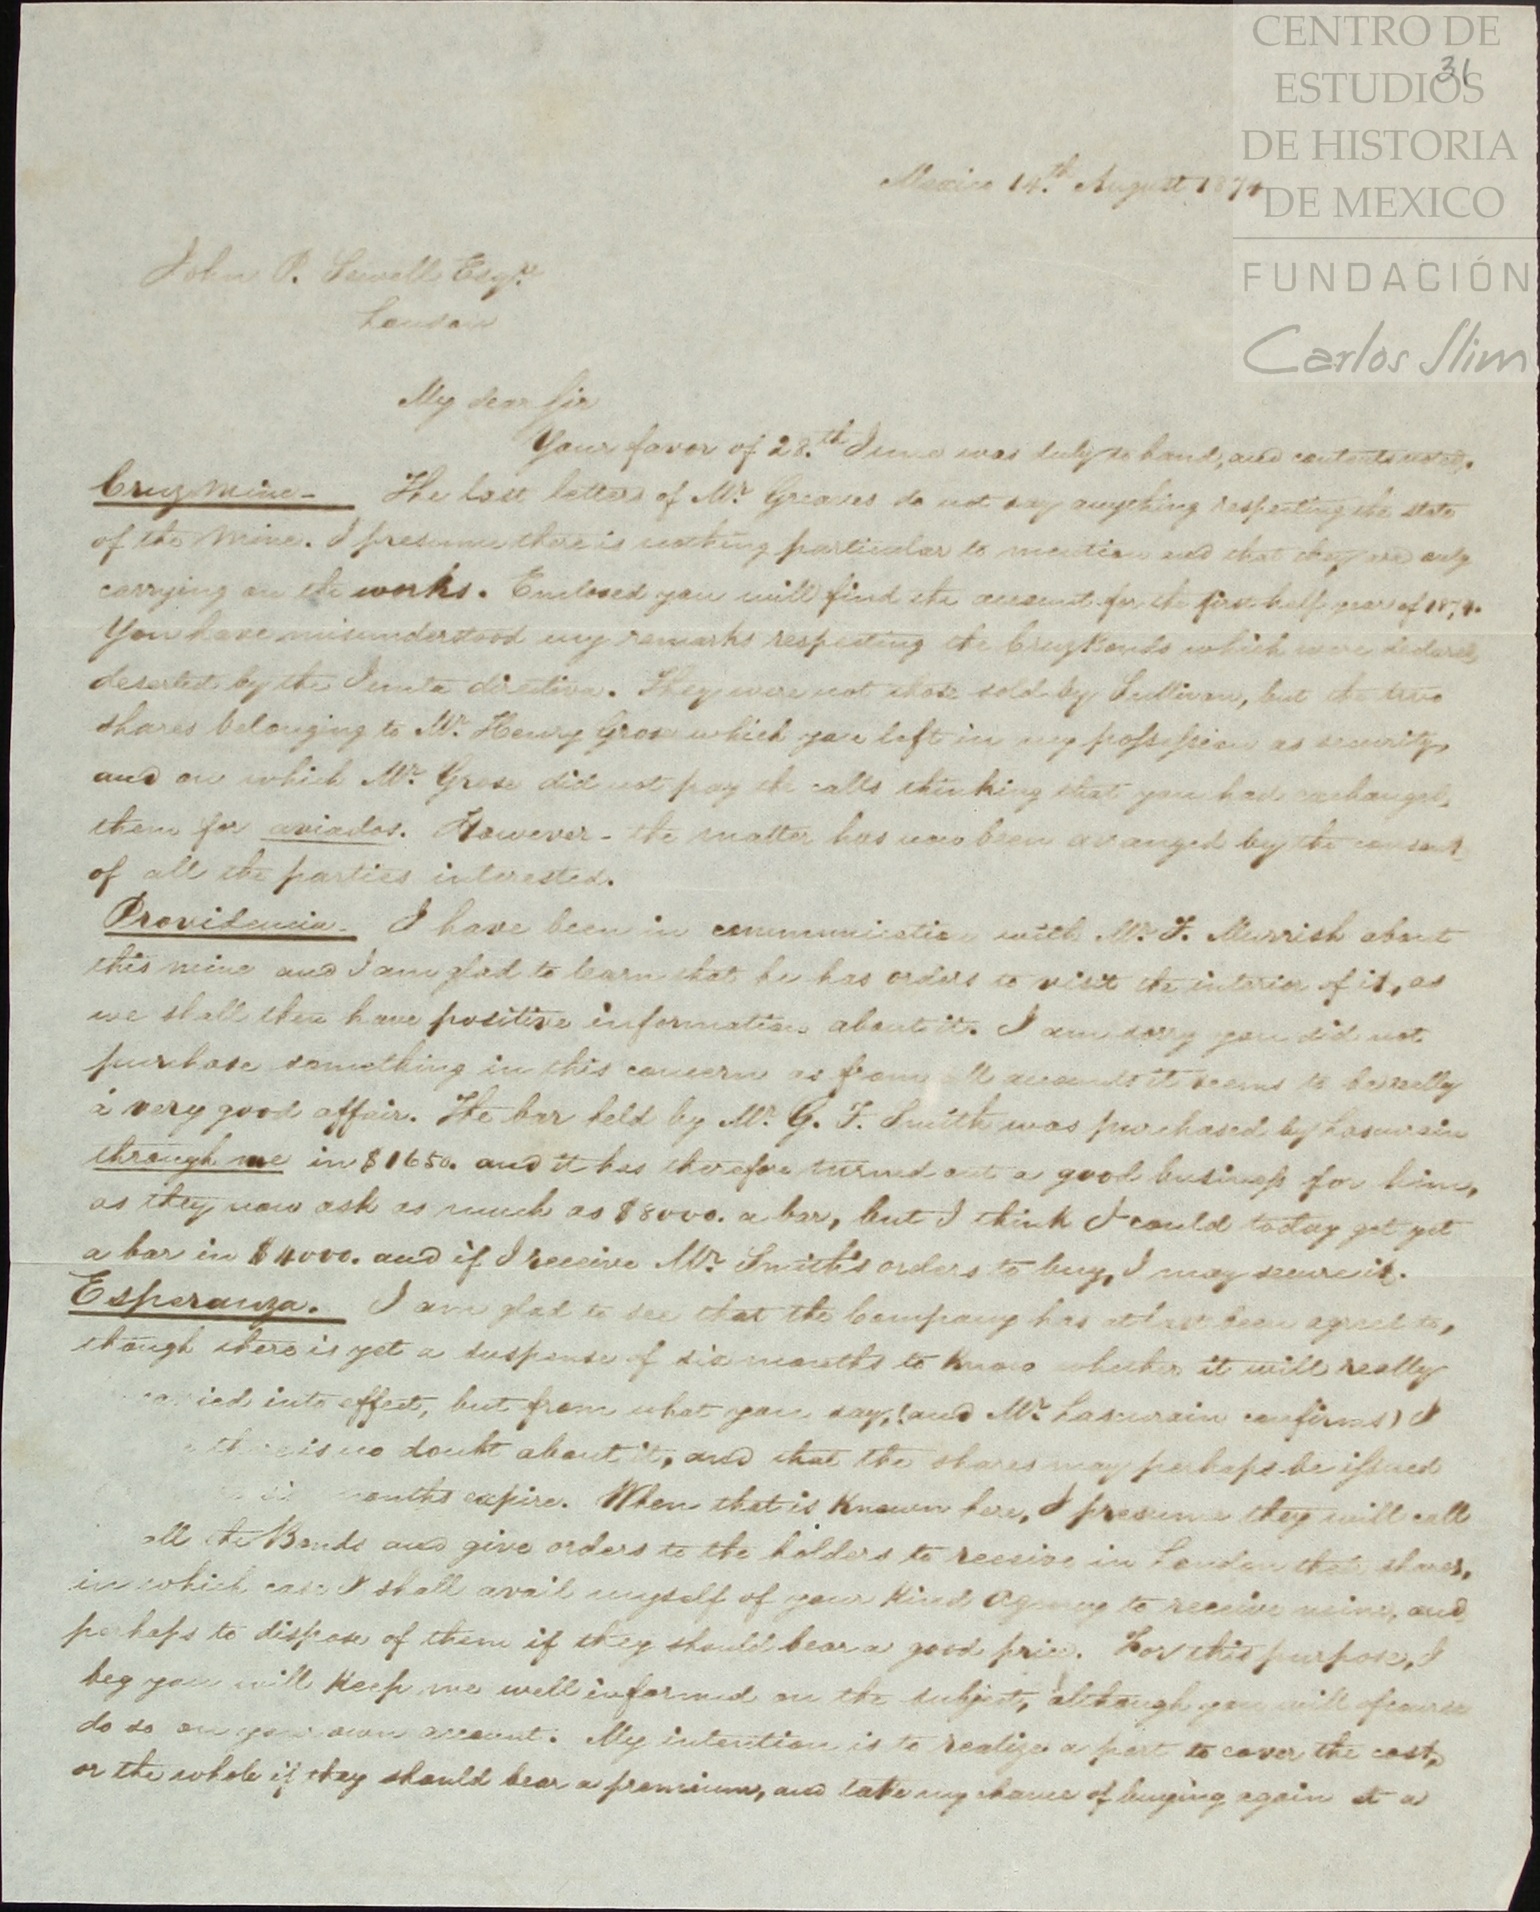 CENTRO DE
ESTUDIOS
DE HISTORIA
DE MEXICO
FUNDACIÓN
Carlos Slim
31
Mexico 14.th August 1874
John P. Sewell Esqre.
London
My dear Sir
Your favor of 28.th June was duly to hand, and contents noted.
Cruz mine - The last letters of Mr. Greaves do not say anything respecting the state
of the Mine. I presume there is nothing particular to mention and that they are only
carrying on the works. Enclosed you will find the account for the first half year of 1874.
You have misunderstood my remarks respecting the Cruz Bonds which were declared
deserted by the Junta directiva. They were not those sold by Sullivan, but the two
shares belonging to Mr. Henry Grose which you left in my possession as security,
and on which Mr. Grose did not pay the calls thinking that you had exchanged
them for aviados. However - the matter has now been arranged by the consent
of all the parties interested.
Providencia - I have been in communication with Mr. F. Murrish about
this mine and I am glad to learn that he has orders to visit the interior of it, as
we shall then have positive information about it. I am sorry you did not
purchase something in this concern as from all accounts it seems to be really
a very good affair. The bar held by Mr. G. F. Smith was purchased by Lascurain
through me in $1650. and it has therefore turned out a good business for him,
as they now ask as much as $8000. a bar, but I think I could today get yet
a bar in $4000. and if I receive Mr. Smith's orders to buy, I may secure it.
Esperanza. I am glad to see that the Company has at last been agreed to,
though there is yet a suspense of six months to know whether it will really
carried into effect, but from what you say, (and Mr. Lascurain confirms) I
there is no doubt about it, and that the shares may perhaps be issued
six months expire. When that is known here, I presume they will call
all the Bonds and give orders to the holders to receive in London their shares,
in which case I shall avail myself of your kind Agency to receive mine, and
perhaps to dispose of them if they should bear a good price. For this purpose, I
beg you will keep me well informed on the subject, although you will of course
do so on your own account. My intention is to realize a part to cover the cost,
or the whole if they should bear a premium, and take my chance of buying again at a